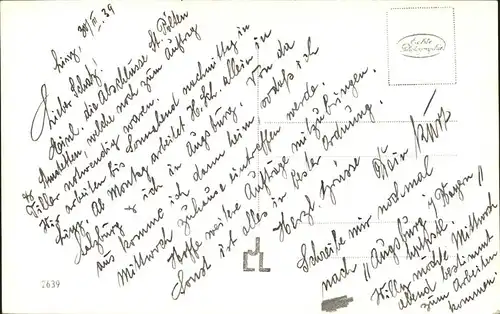 30/III. 39
Linz,
Lieber Schatz!
Heinl, die Abschlüsse St. Pölten
u. Amstetten, welche noch zum Auftrag
Tiller notwendig waren.
Wir arbeiten bis Sonnabend nachmittag in
Linz. Ab Montag arbeitet H. Sch. allein in
Salzburg u. ich in Augsburg. Von da
aus komme ich dann heim sodaß ich
Mittwoch zuhause eintreffen werde.
Hoffe weitere Aufträge mitzubringen.
Sonst ist alles in bester Ordnung.
Herzl. Grüsse Dein
Schreibe mir nochmal
nach „Augsburg / Bayern"
Willy möchte Mittwoch
abend bestimmt
zum Arbeiten
kommen.
Echte
Photographie
2639